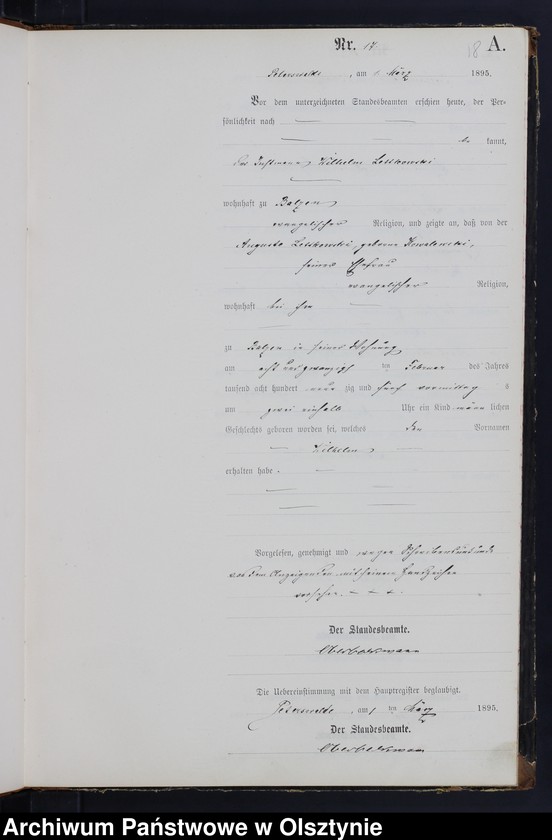 Nr. 17
18 A.
Peterswalde, am 1. März 1895.
Vor dem unterzeichneten Standesbeamten erschien heute, der Per-
sönlichkeit nach
be kannt,
der Instmann Wilhelm
wohnhaft zu Balzen
evangelischer Religion, und zeigte an, daß von der
Auguste geborne Kowalewski,
seiner Ehefrau
evangelischer Religion,
wohnhaft bei ihm
zu Balzen in seiner Wohnung
am acht und zwanzigsten Februar des Jahres
tausend acht hundert neun zig und fünf vormittag s
um zwei einhalb Uhr ein Kind männ lichen
Geschlechts geboren worden sei, welches den Vornamen
Wilhelm
erhalten habe.
Vorgelesen, genehmigt und wegen Schreibensunkunde
von dem Anzeigenden mit seinem Handzeichen
versehen. + + +
Der Standesbeamte.
Die Uebereinstimmung mit dem Hauptregister beglaubigt.
Peterswalde, am 1 ten März 1895.
Der Standesbeamte.
Archiwum Państwowe w Olsztynie